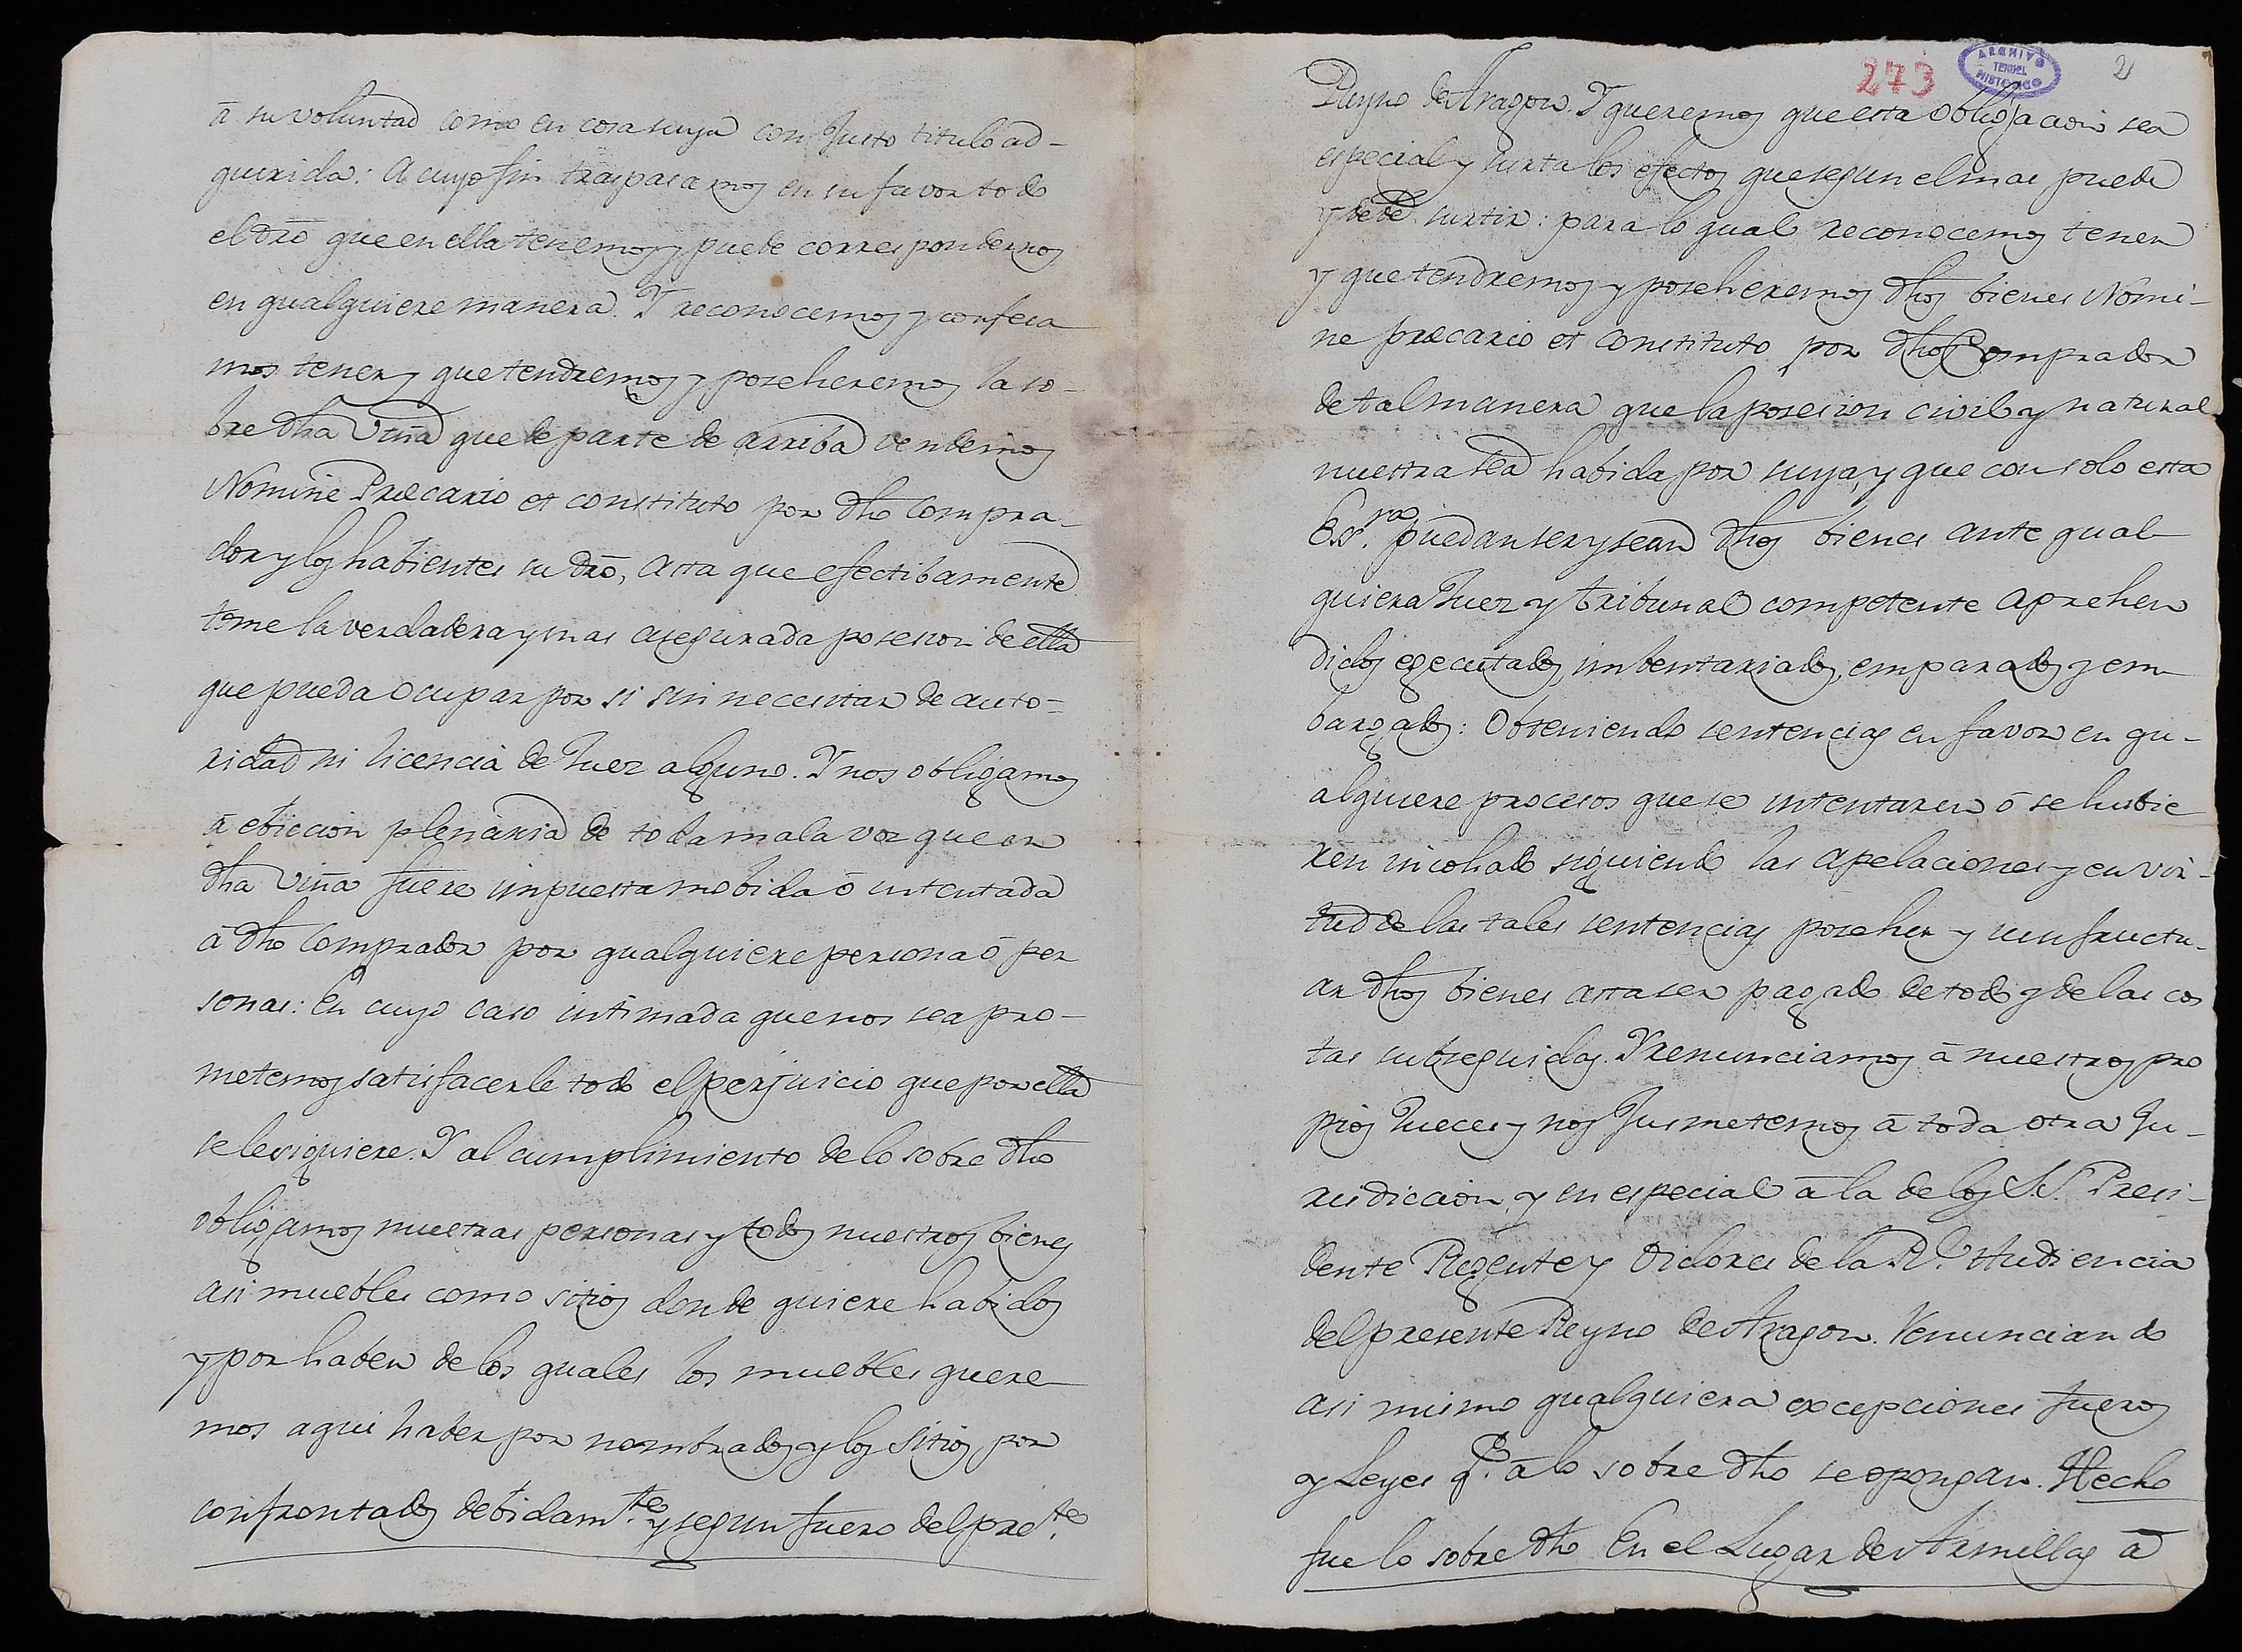 â su voluntad como en cosa suya con Justo titulo ad-
quirida: A cuyo fin traspasamos en su favor todo
el dro que en ella tenemos y puede correspondernos
en qualquiere manera. Y reconocemos y confesa
mos tener y que tendremos y poseheremos la so-
bre dha Viña que de parte de arriba vendemos
Nomine Precario et constituto por dho Compra-
dor y los habientes su dro, asta que efectibamente
tome la verdadera y mas asegurada posesion de ella
que pueda ocupar por si sin necesitar de auto=
ridad ni licencia de Juez alguno. Y nos obligamos
â ebiccion plenaria de toda mala voz que en
dha Viña fuere impuesta mobida ô intentada
â dho Comprador por qualquiere persona ô per
sonas: En cuyo caso intimada que nos sea pro-
metemos satisfacerle todo el perjuicio que por ella
se le siguiere. Y al cumplimiento de lo sobre dho
obligamos nuestras personas y todos nuestros bienes
asi muebles como sitios donde quiere habidos
y por haber de los quales los muebles quere
mos aqui haber por nombrados y los sitios por
confrontados debidamte. y segun fuero del prete.
273
ARCHIVO
HISTORICO
TERUEL
2
Reyno de Aragon. Y queremos que esta obligacion sea
especial y surta los efectos que segun el mas puede
y debe surtir: para lo qual reconocemos tener
y que tendremos y poseheremos dhos bienes Nomi-
ne precario et constituto por dho Comprador
de tal manera que la posesion civil y natural
nuestra sea habida por suya, y que con solo esta
Essra. puedan ser y sean dhos bienes ante qual
quiera Juez y tribunal competente aprehen
didos egecutados, imbentariados, emparados y em
bargados: Obteniendo sentencias en favor en qu-
alquiere procesos que se intentaren ô se hubie
ren incohado siguiendo las apelaciones y en vir-
tud de las tales sentencias poseher y usufructu-
ar dhos bienes asta ser pagado de todo y de las cos
tas subseguidas. Y renunciamos â nuestros pro
pios Jueces y nos Jusmetemos â toda otra Ju-
risdiccion, y en especial â la de los S.S. Presi-
dente Regente y Oidores de la Rl. Audiencia
del presente Reyno de Aragon. Renunciando
asi mismo qualquiera excepciones fueros
y Leyes qe. â lo sobre dho se opongan. Hecho
fue lo sobre dho En el Lugar de Armillas â